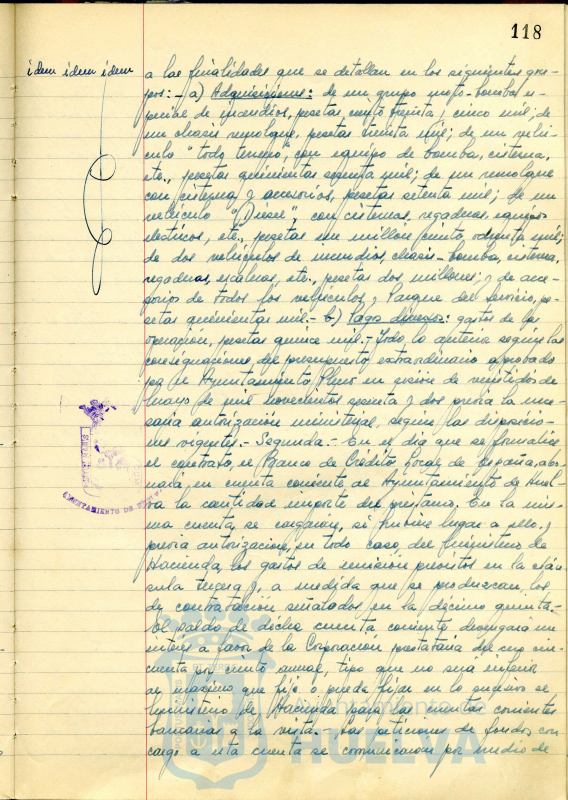 118
idem idem idem
a las finalidades que se detallan en los siguientes gru-
pos:- a) Adquisiciones: de un grupo moto-bomba es-
pecial de incendios, pesetas ciento treinta y cinco mil; de
un chasis remolque, pesetas treinta mil; de un vehí-
culo "todo terreno", con equipo de bomba, cisterna,
etc., pesetas quinientas setenta mil; de un remolque
con cisterna y accesorios, pesetas setenta mil; de un
vehículo "Diesel", con cisternas, regaderas, equipos
electricos, etc., pesetas un millon ciento ochenta mil;
de dos vehículos de incendios, chasis-bomba, cisterna,
regaderas, escaleras, etc., pesetas dos millones; y de acce-
sorios de todos los vehículos y Parque del Servicio, pe-
setas quinientas mil.- b) Pagos diversos: gastos de la
operación, pesetas quince mil.- Todo lo anterior según las
consignaciones del presupuesto extraordinario aprobado
por el Ayuntamiento Pleno en sesion de veintidos de
mayo de mil novecientos sesenta y dos previa la nece-
saria autorización ministerial, según las disposicio-
nes vigentes.- Segunda.- En el dia que se formalice
el contrato, el Banco de Crédito Local de España, abo-
nará, en cuenta corriente al Ayuntamiento de Huel-
va la cantidad importe del prestamo. En la mis-
ma cuenta, se cargaran, si hubiere lugar a ello y
previa autorizacion, en todo caso, del Ministerio de
Hacienda, los gastos de emisión previstos en la cláu-
sula tercera y, a medida que se produzcan, los
de contratacion señalados en la décimo quinta.-
El saldo de dicha cuenta corriente devengará un
interes a favor de la Corporación prestataria del cin-
cuenta por ciento anual, tipo que no será inferior
al maximo que fije o pueda fijar en lo sucesivo el
Ministerio de Hacienda para las cuentas corrientes
bancarias a la vista.- Las peticiones de fondos con
cargo a esta cuenta se comunicaran por medio de
AYUNTAMIENTO DE
HUELVA